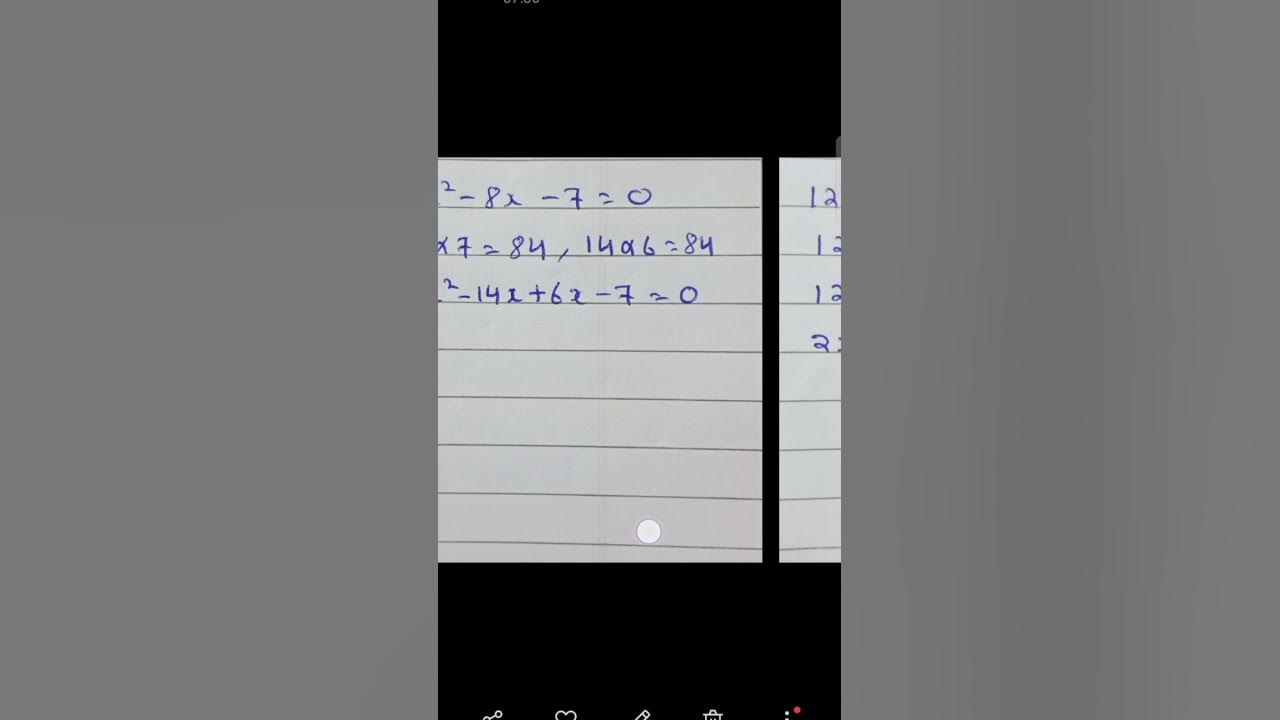 ² - 8x - 7 = 0
x 7 = 84, 14 x 6 = 84
² - 14x + 6x - 7 = 0
12
12
12
2